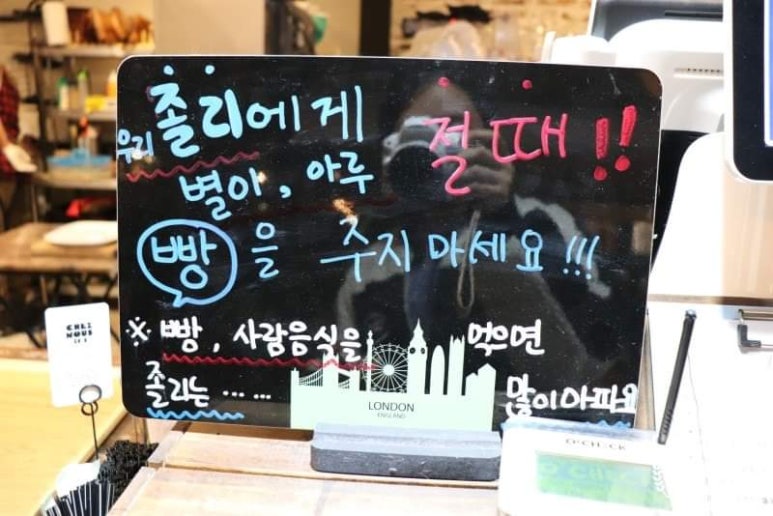 우리 졸리에게 절때!!
별이, 아루
빵을 주지마세요!!!
※ 빵, 사람음식을 먹으면
졸리는 ...... 많이아파요
LONDON
ENGLAND
CHEZ
NOUS